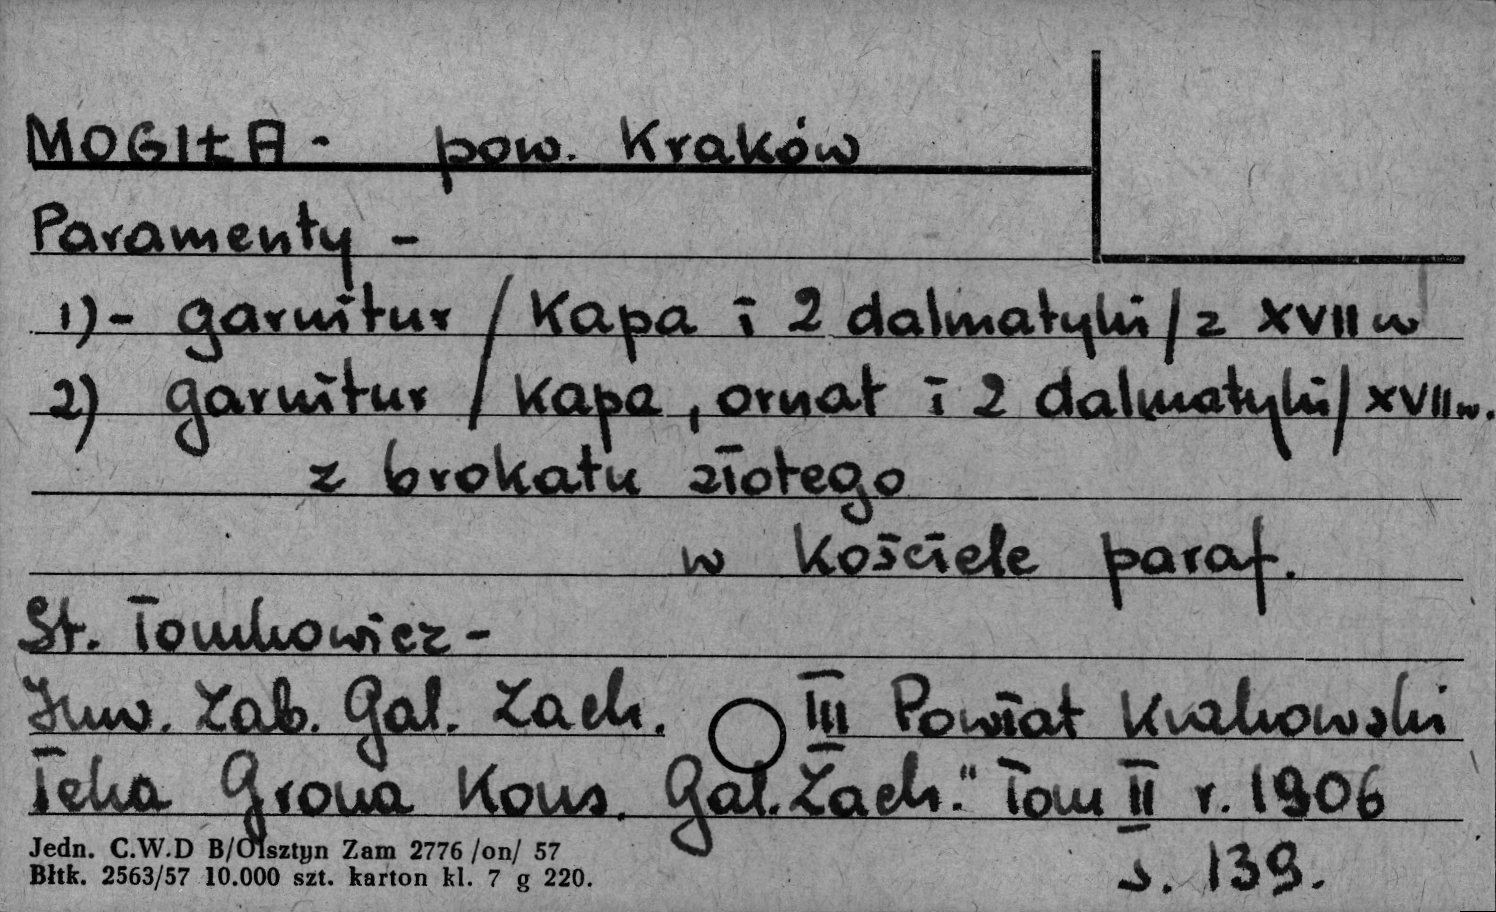 MOGIŁA - pow. Kraków
Paramenty -
1) - garnitur / Kapa i 2 dalmatyki / z XVII w
2) garnitur / Kapa, ornat i 2 dalmatyki / XVII w.
z brokatu złotego
w kościele paraf.
St. Tomkowicz -
Inw. Zab. Gal. Zach. III Powiat Krakowski
Teka Grona Kons. Gal. Zach." Tom II r. 1906
s. 139.
Jedn. C.W.D B/Olsztyn Zam 2776 /on/ 57
Błtk. 2563/57 10.000 szt. karton kl. 7 g 220.